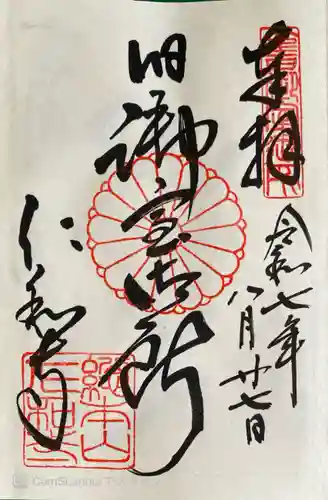 奉拝
令和七年
八月廿七日
旧御室御所
仁和寺
CamScanner